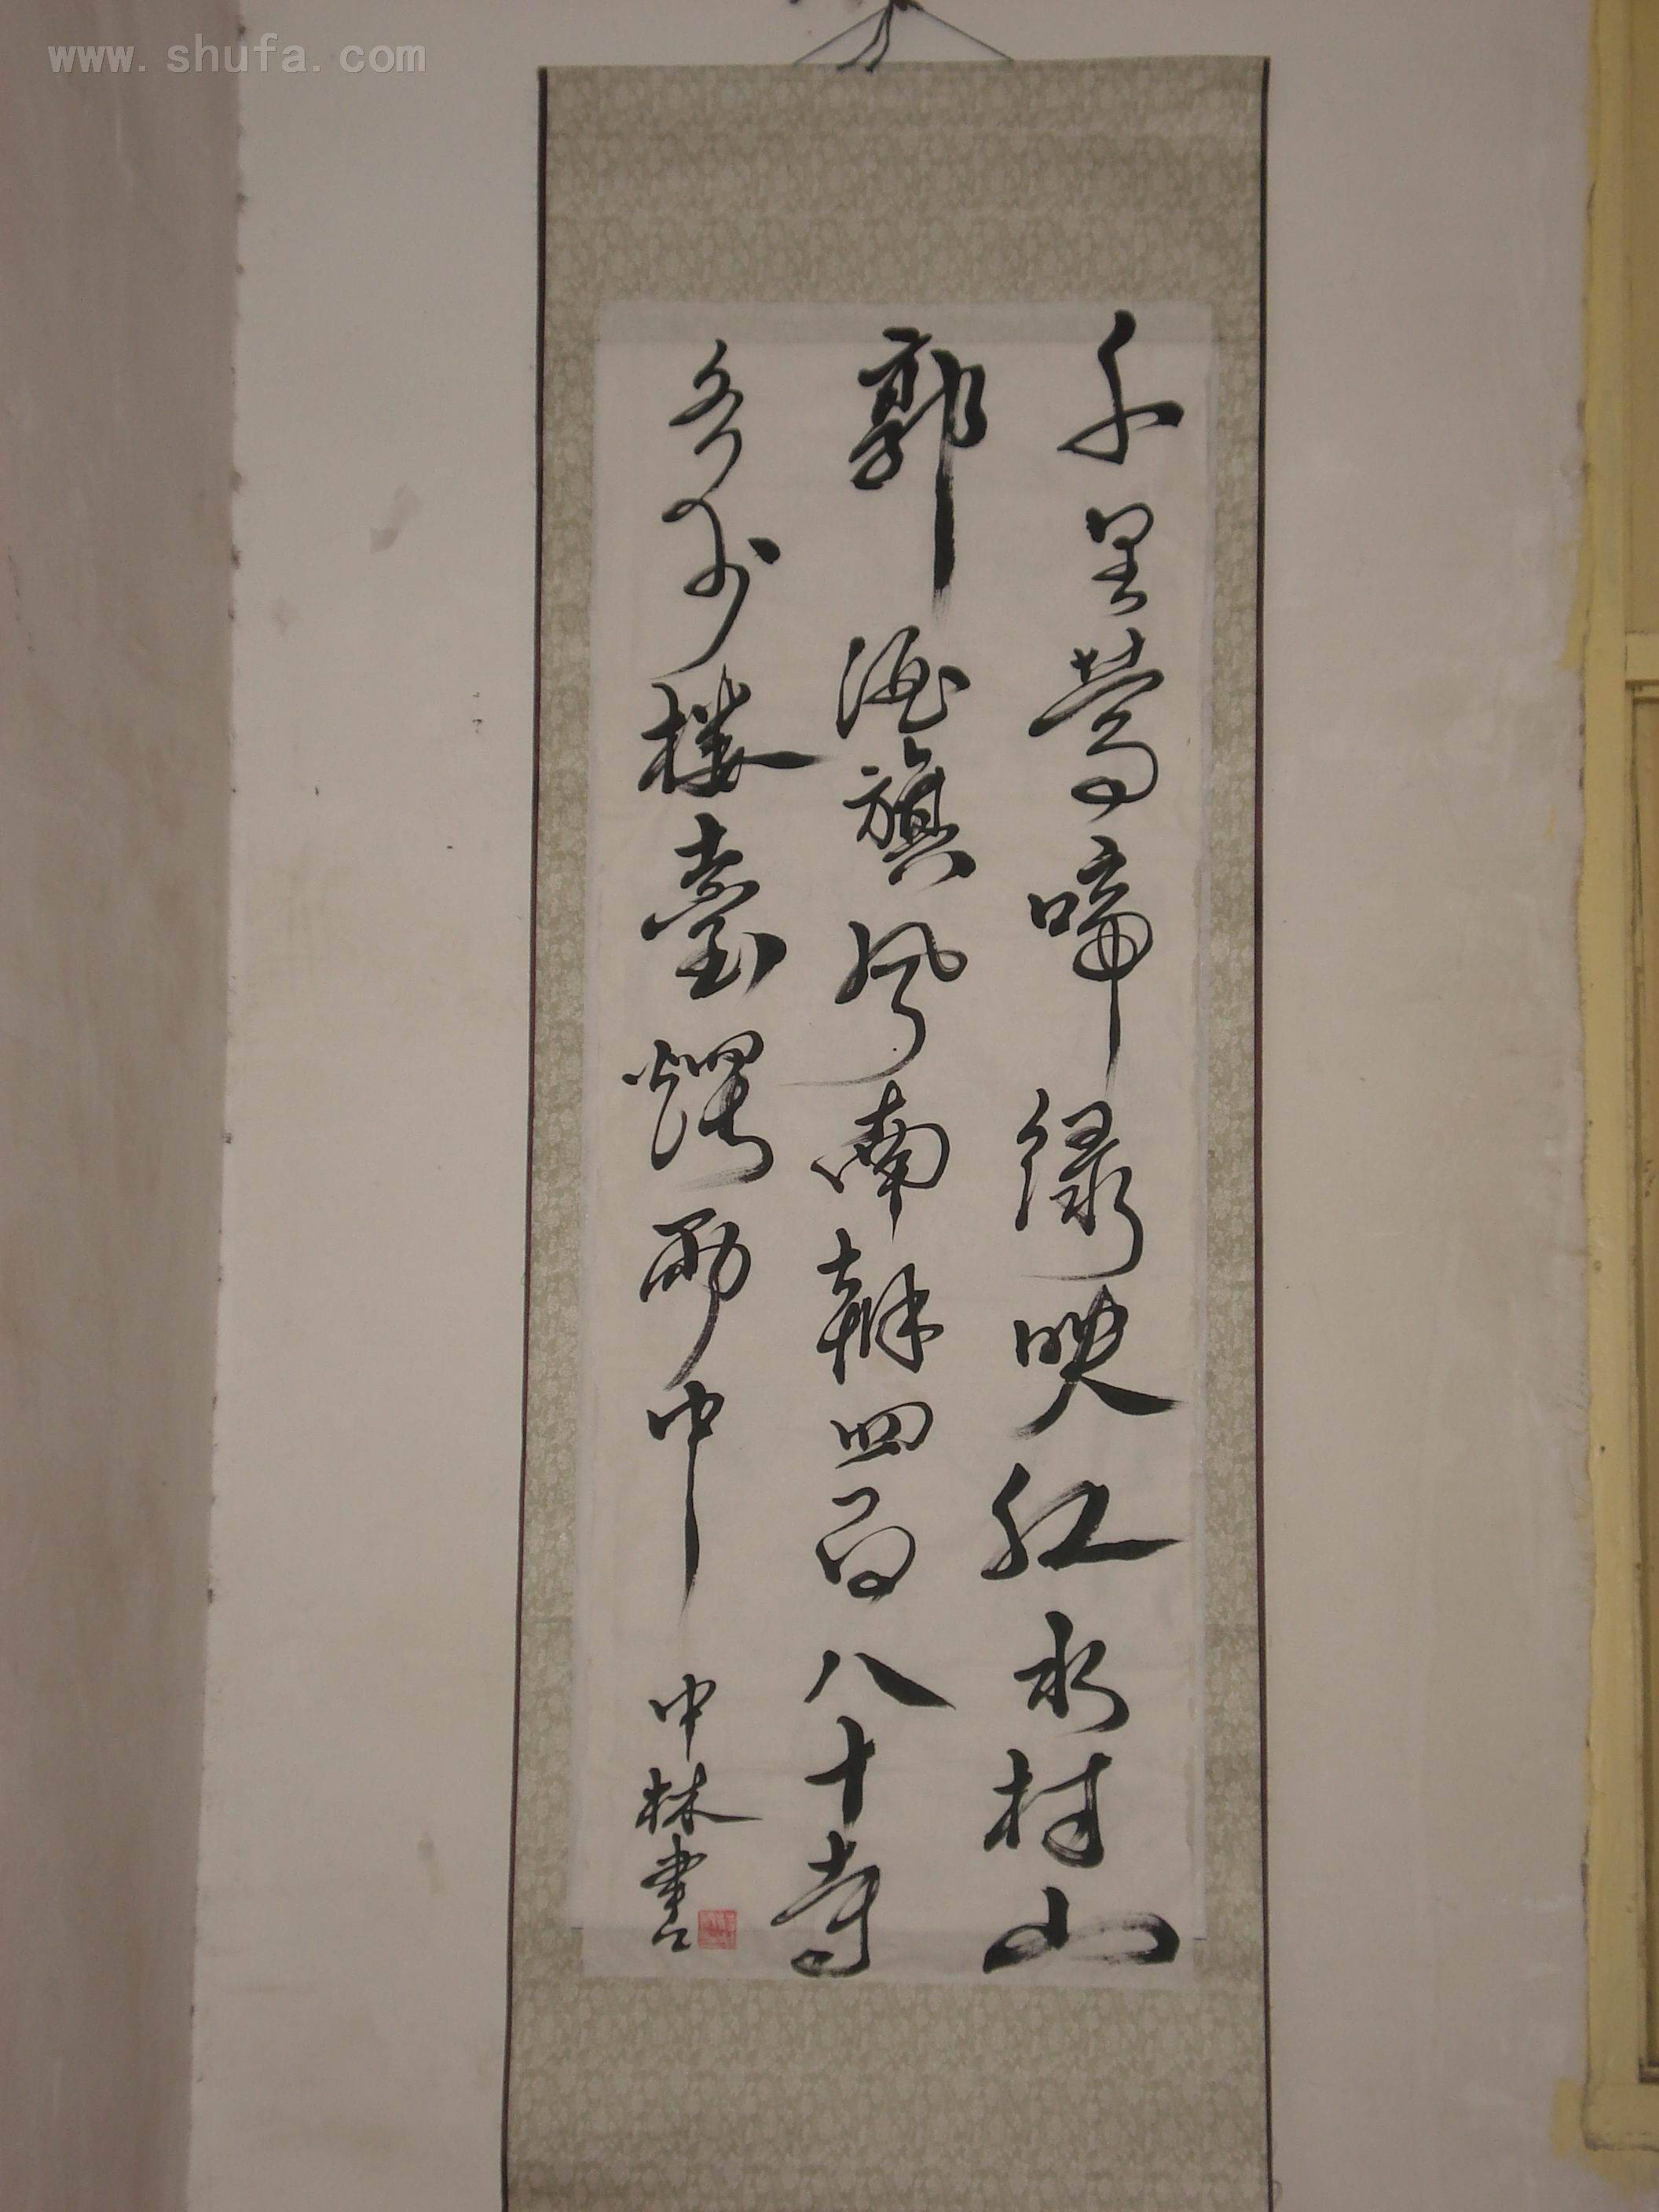 www.shufa.com
千里莺啼绿映红水村山
郭酒旗风南朝四百八十寺
多少楼臺烟雨中
中林書